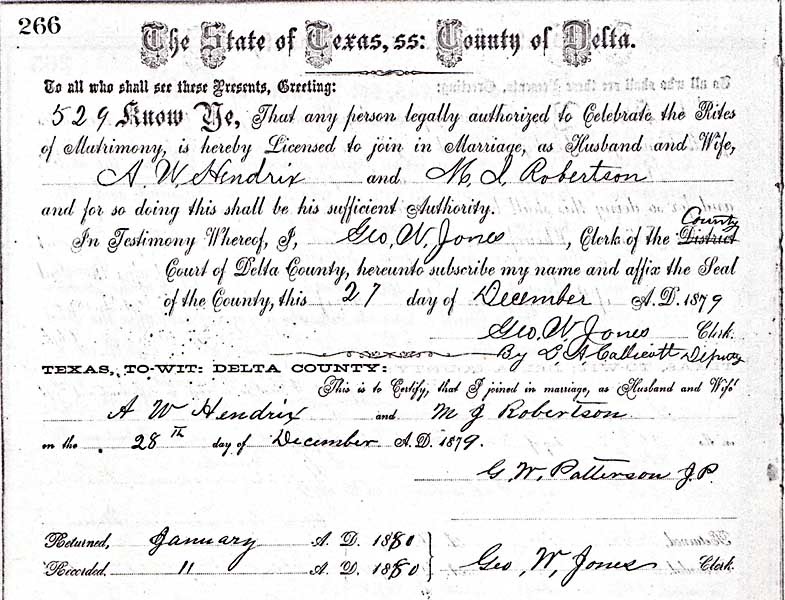 266
The State of Texas, ss: County of Delta.
To all who shall see these Presents, Greeting:
529 Know Ye, That any person legally authorized to Celebrate the Rites
of Matrimony, is hereby Licensed to join in Marriage, as Husband and Wife,
A. W. Hendrix and M. J. Robertson
and for so doing this shall be his sufficient Authority.
County
In Testimony Whereof, I, Geo. W. Jones, Clerk of the District
Court of Delta County, hereunto subscribe my name and affix the Seal
of the County, this 27 day of December A. D. 1879
Geo. W Jones Clerk.
By L A Callicott Deputy
TEXAS, TO-WIT: DELTA COUNTY:
This is to Certify, that I joined in marriage, as Husband and Wife
A W Hendrix and M J Robertson
on the 28th day of December A. D. 1879.
G. W. Patterson J.P.
Returned, January A. D. 1880
Recorded. 11 A. D. 1880
Geo. W. Jones Clerk.